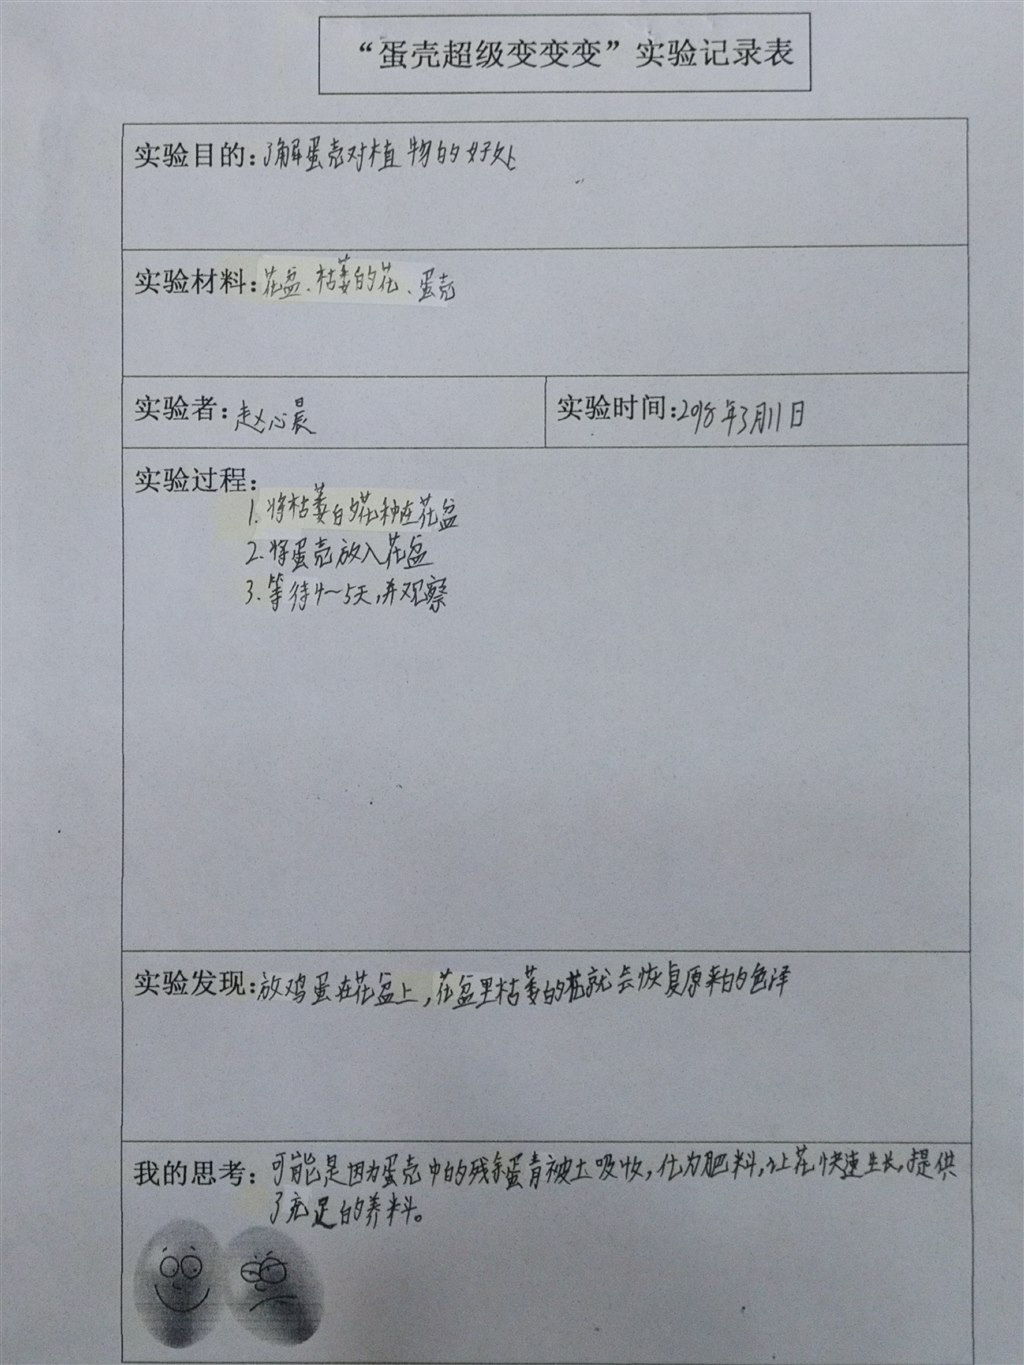 “蛋壳超级变变变”实验记录表
实验目的:了解蛋壳对植物的好处
实验材料:花盆、枯萎的花、蛋壳
实验者:赵心晨
实验时间:2018年3月11日
实验过程:
1.将枯萎的花种在花盆
2.将蛋壳放入花盆
3.等待4~5天,并观察
实验发现:放鸡蛋在花盆上,花盆里枯萎的花就会恢复原来的色泽
我的思考:可能是因为蛋壳中的残余蛋青被土吸收,化为肥料,让花快速生长,提供
了充足的养料。